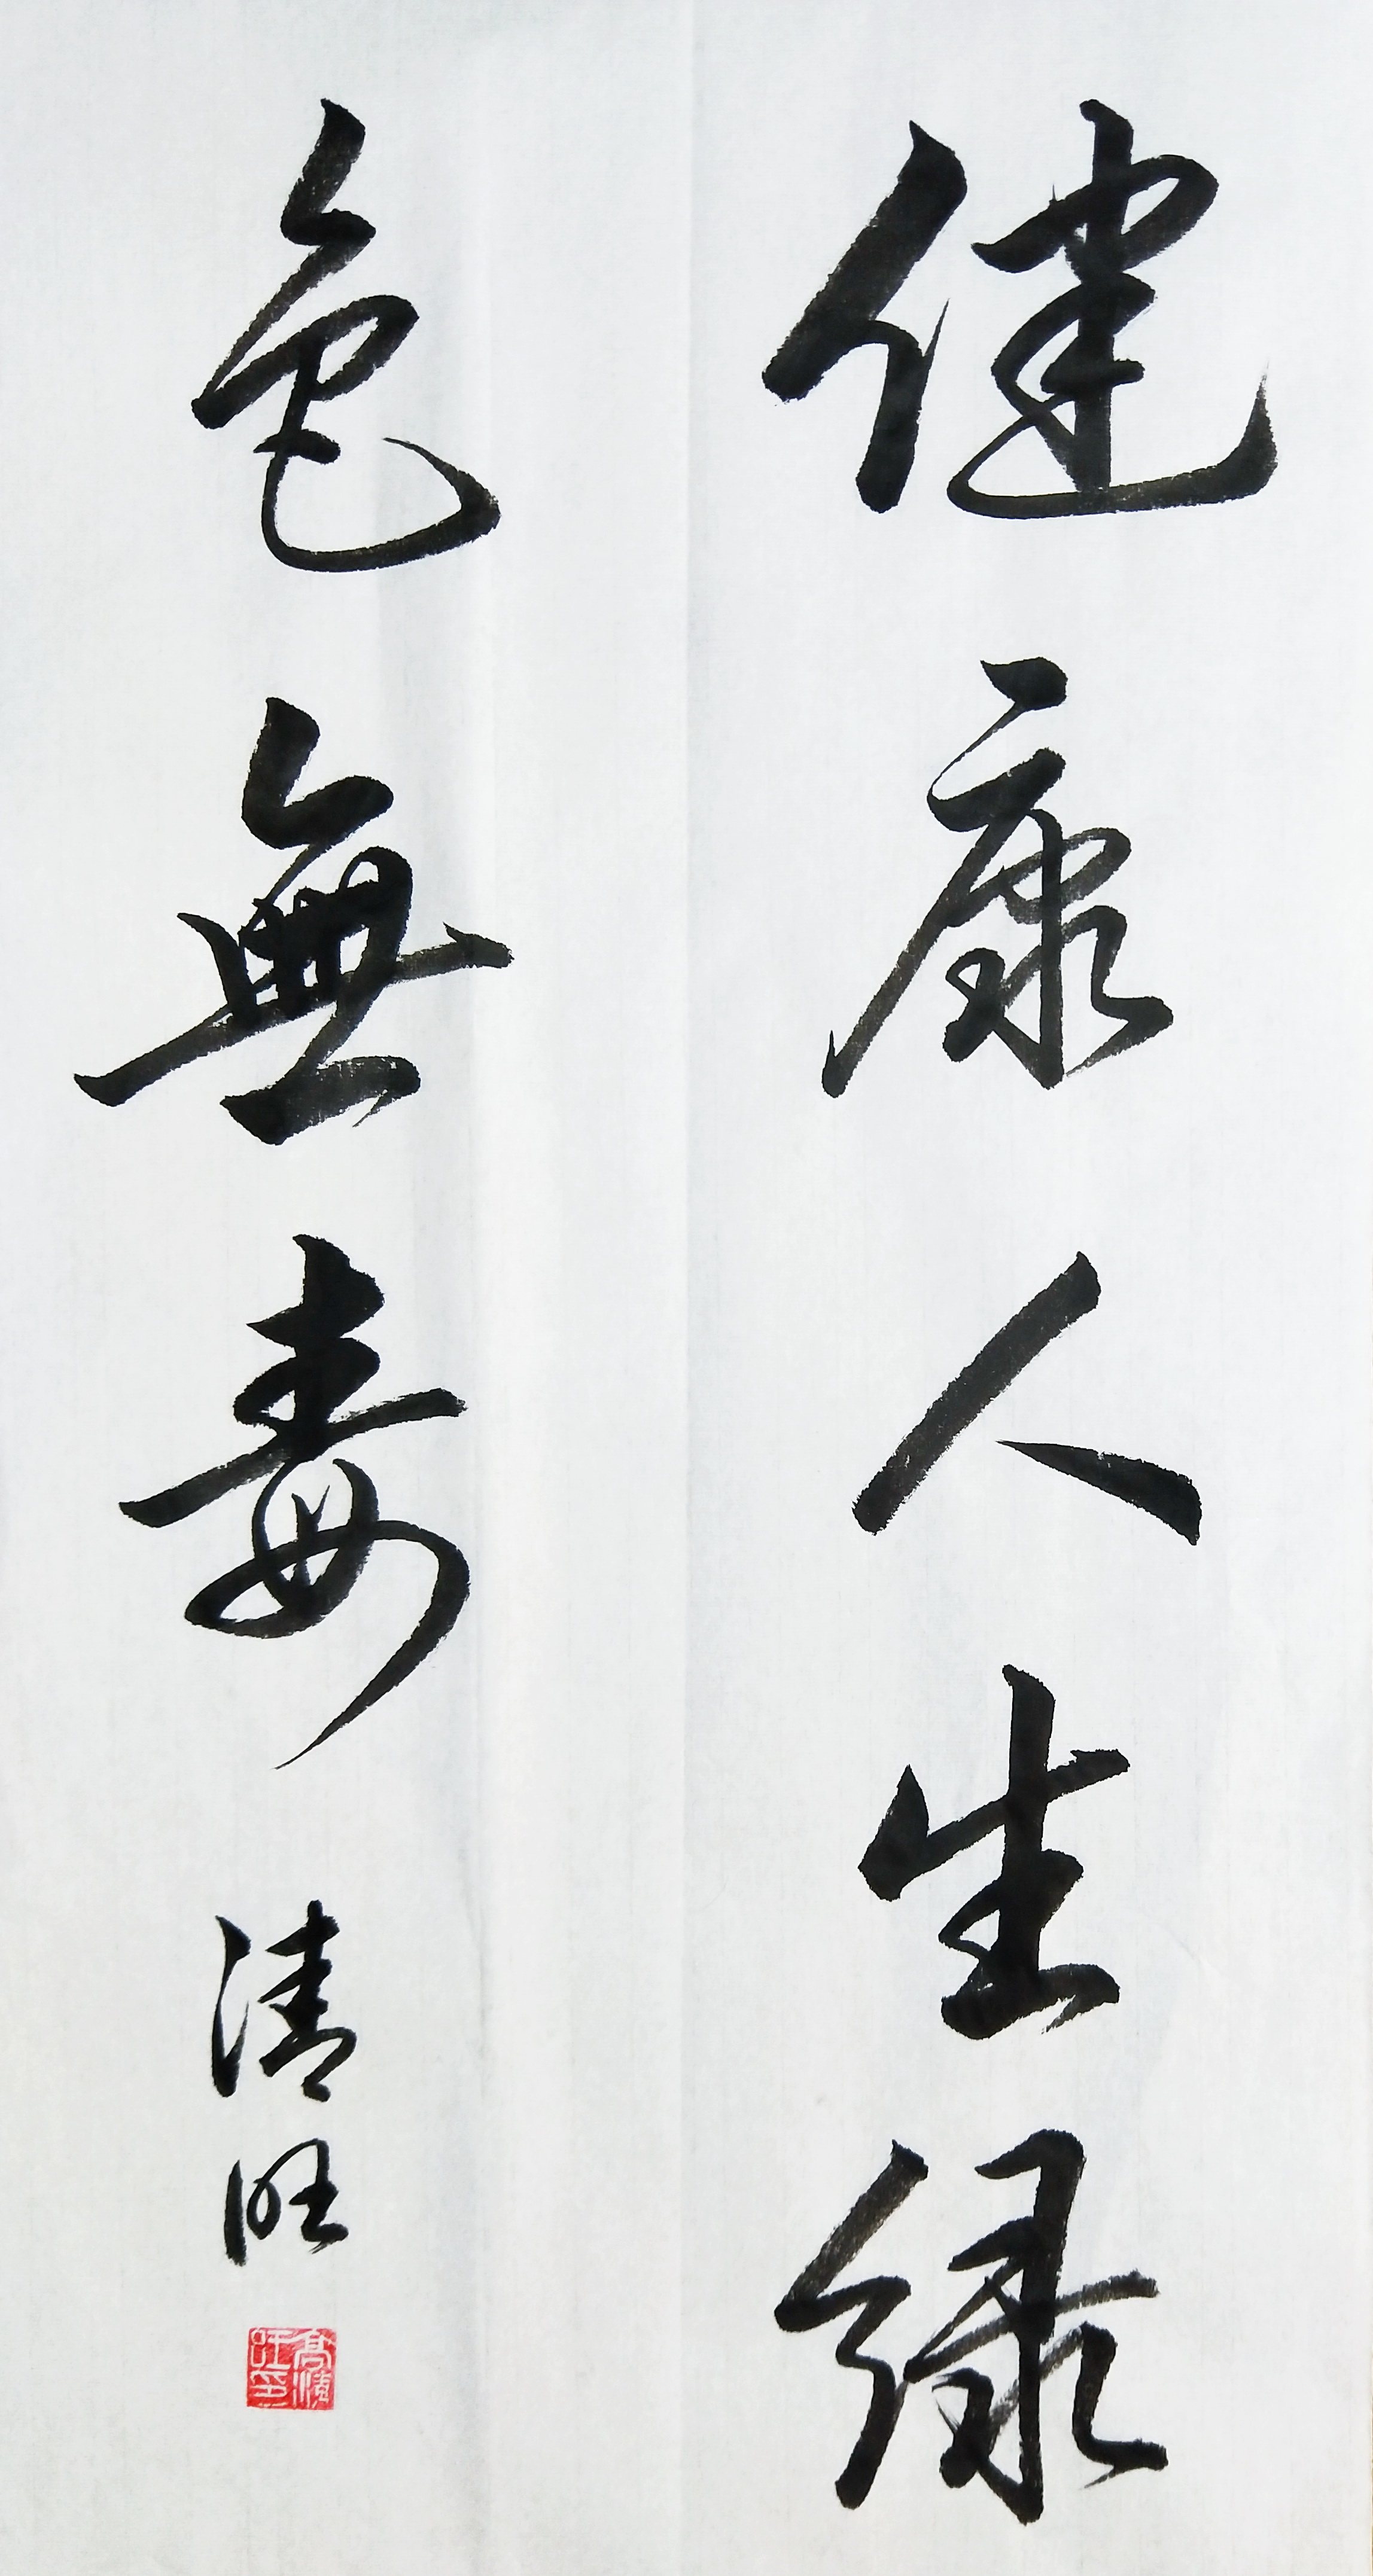 健康人生绿
色無毒
清旺
高清旺印